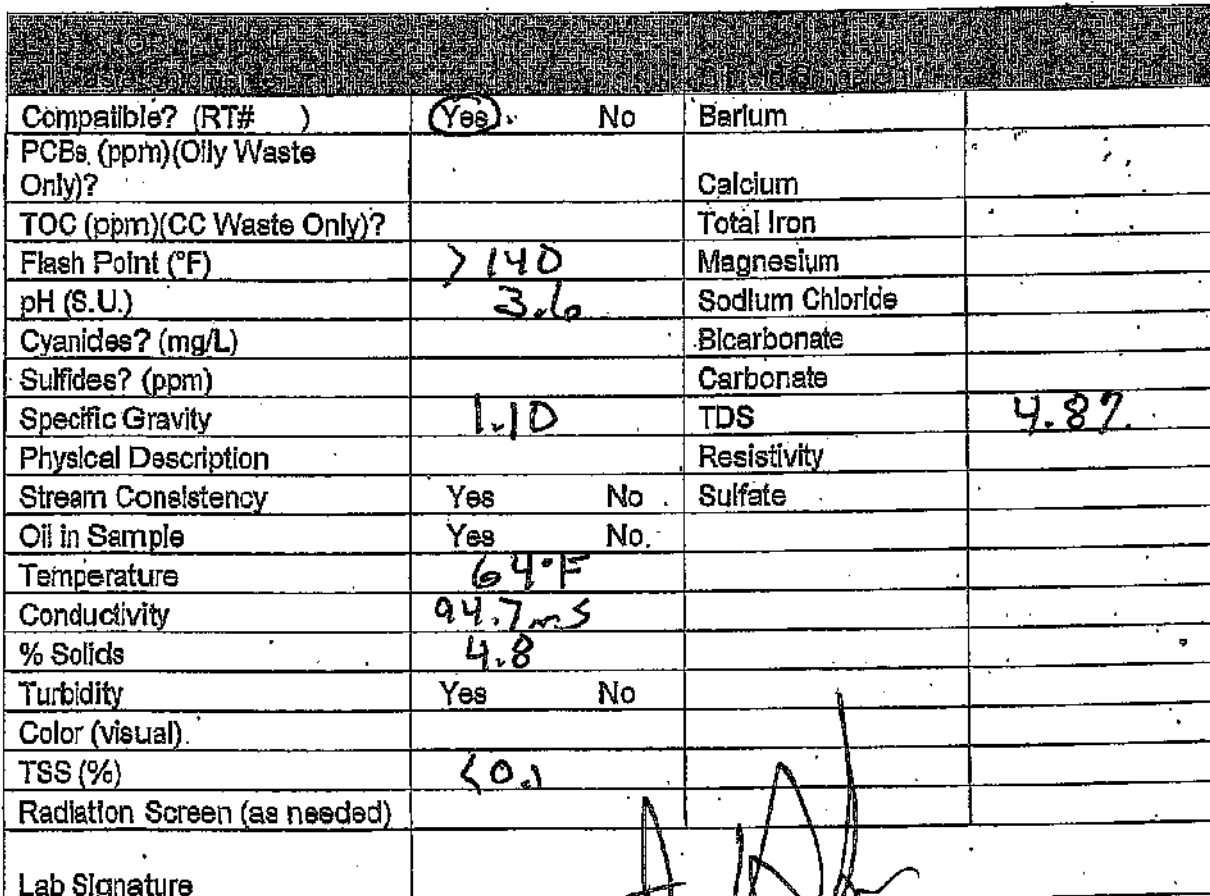 Compatible? (RT#      )   Yes   No   Barium
PCBs (ppm)(Oily Waste
Only)?   Calcium
TOC (ppm)(CC Waste Only)?   Total Iron
Flash Point (°F)   >140   Magnesium
pH (S.U.)   3.6   Sodium Chloride
Cyanides? (mg/L)   Bicarbonate
Sulfides? (ppm)   Carbonate
Specific Gravity   1.10   TDS   4.87
Physical Description   Resistivity
Stream Consistency   Yes   No   Sulfate
Oil in Sample   Yes   No
Temperature   64°F
Conductivity   94.7 mS
% Solids   4.8
Turbidity   Yes   No
Color (visual)
TSS (%)   <0.1
Radiation Screen (as needed)
Lab Signature